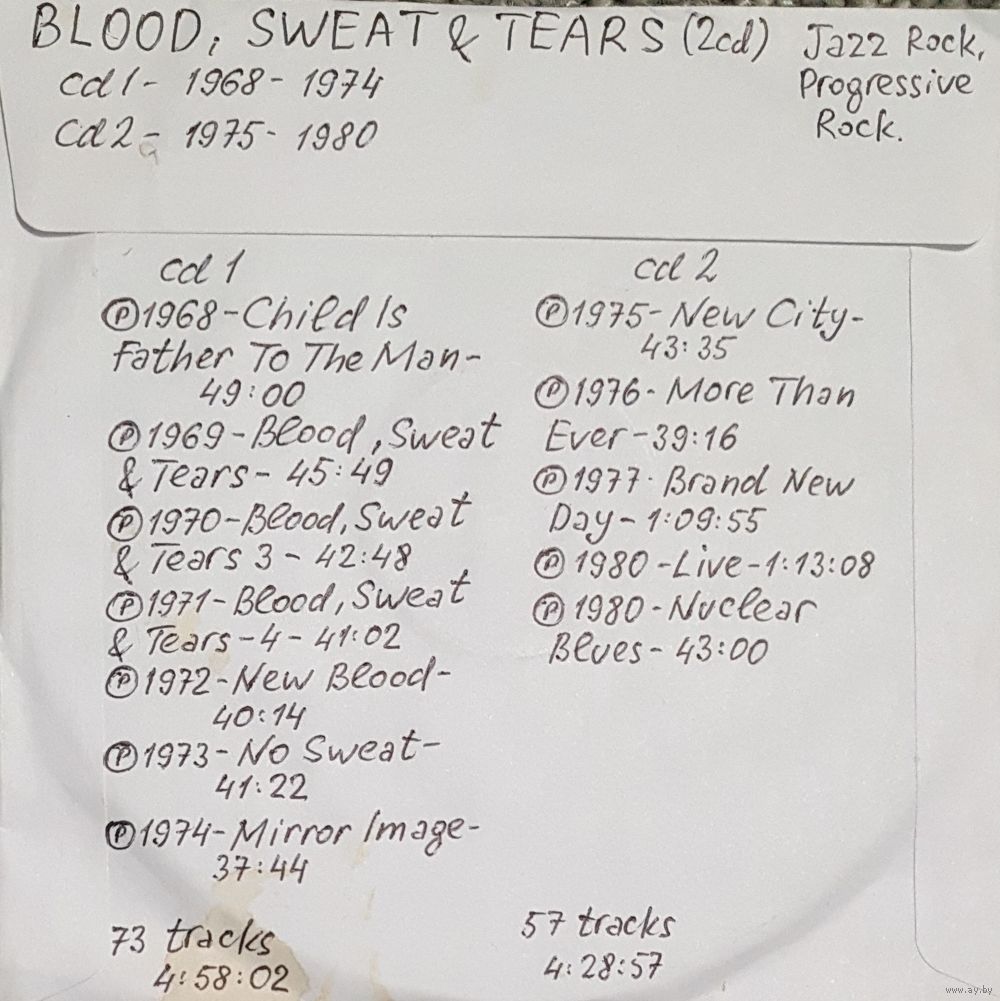 BLOOD, SWEAT & TEARS (2cd)
Jazz Rock,
Progressive
Rock.
cd 1 - 1968 - 1974
cd 2 - 1975 - 1980
cd 1
℗1968-Child Is
Father To The Man-
49:00
℗1969-Blood, Sweat
& Tears- 45:49
℗1970-Blood, Sweat
& Tears 3 - 42:48
℗1971-Blood, Sweat
& Tears-4 - 41:02
℗1972-New Blood-
40:14
℗1973-No Sweat-
41:22
℗1974-Mirror Image-
37:44
73 tracks
4:58:02
cd 2
℗1975-New City-
43:35
℗1976-More Than
Ever-39:16
℗1977-Brand New
Day-1:09:55
℗1980-Live-1:13:08
℗1980-Nuclear
Blues-43:00
57 tracks
4:28:57
www.ay.by